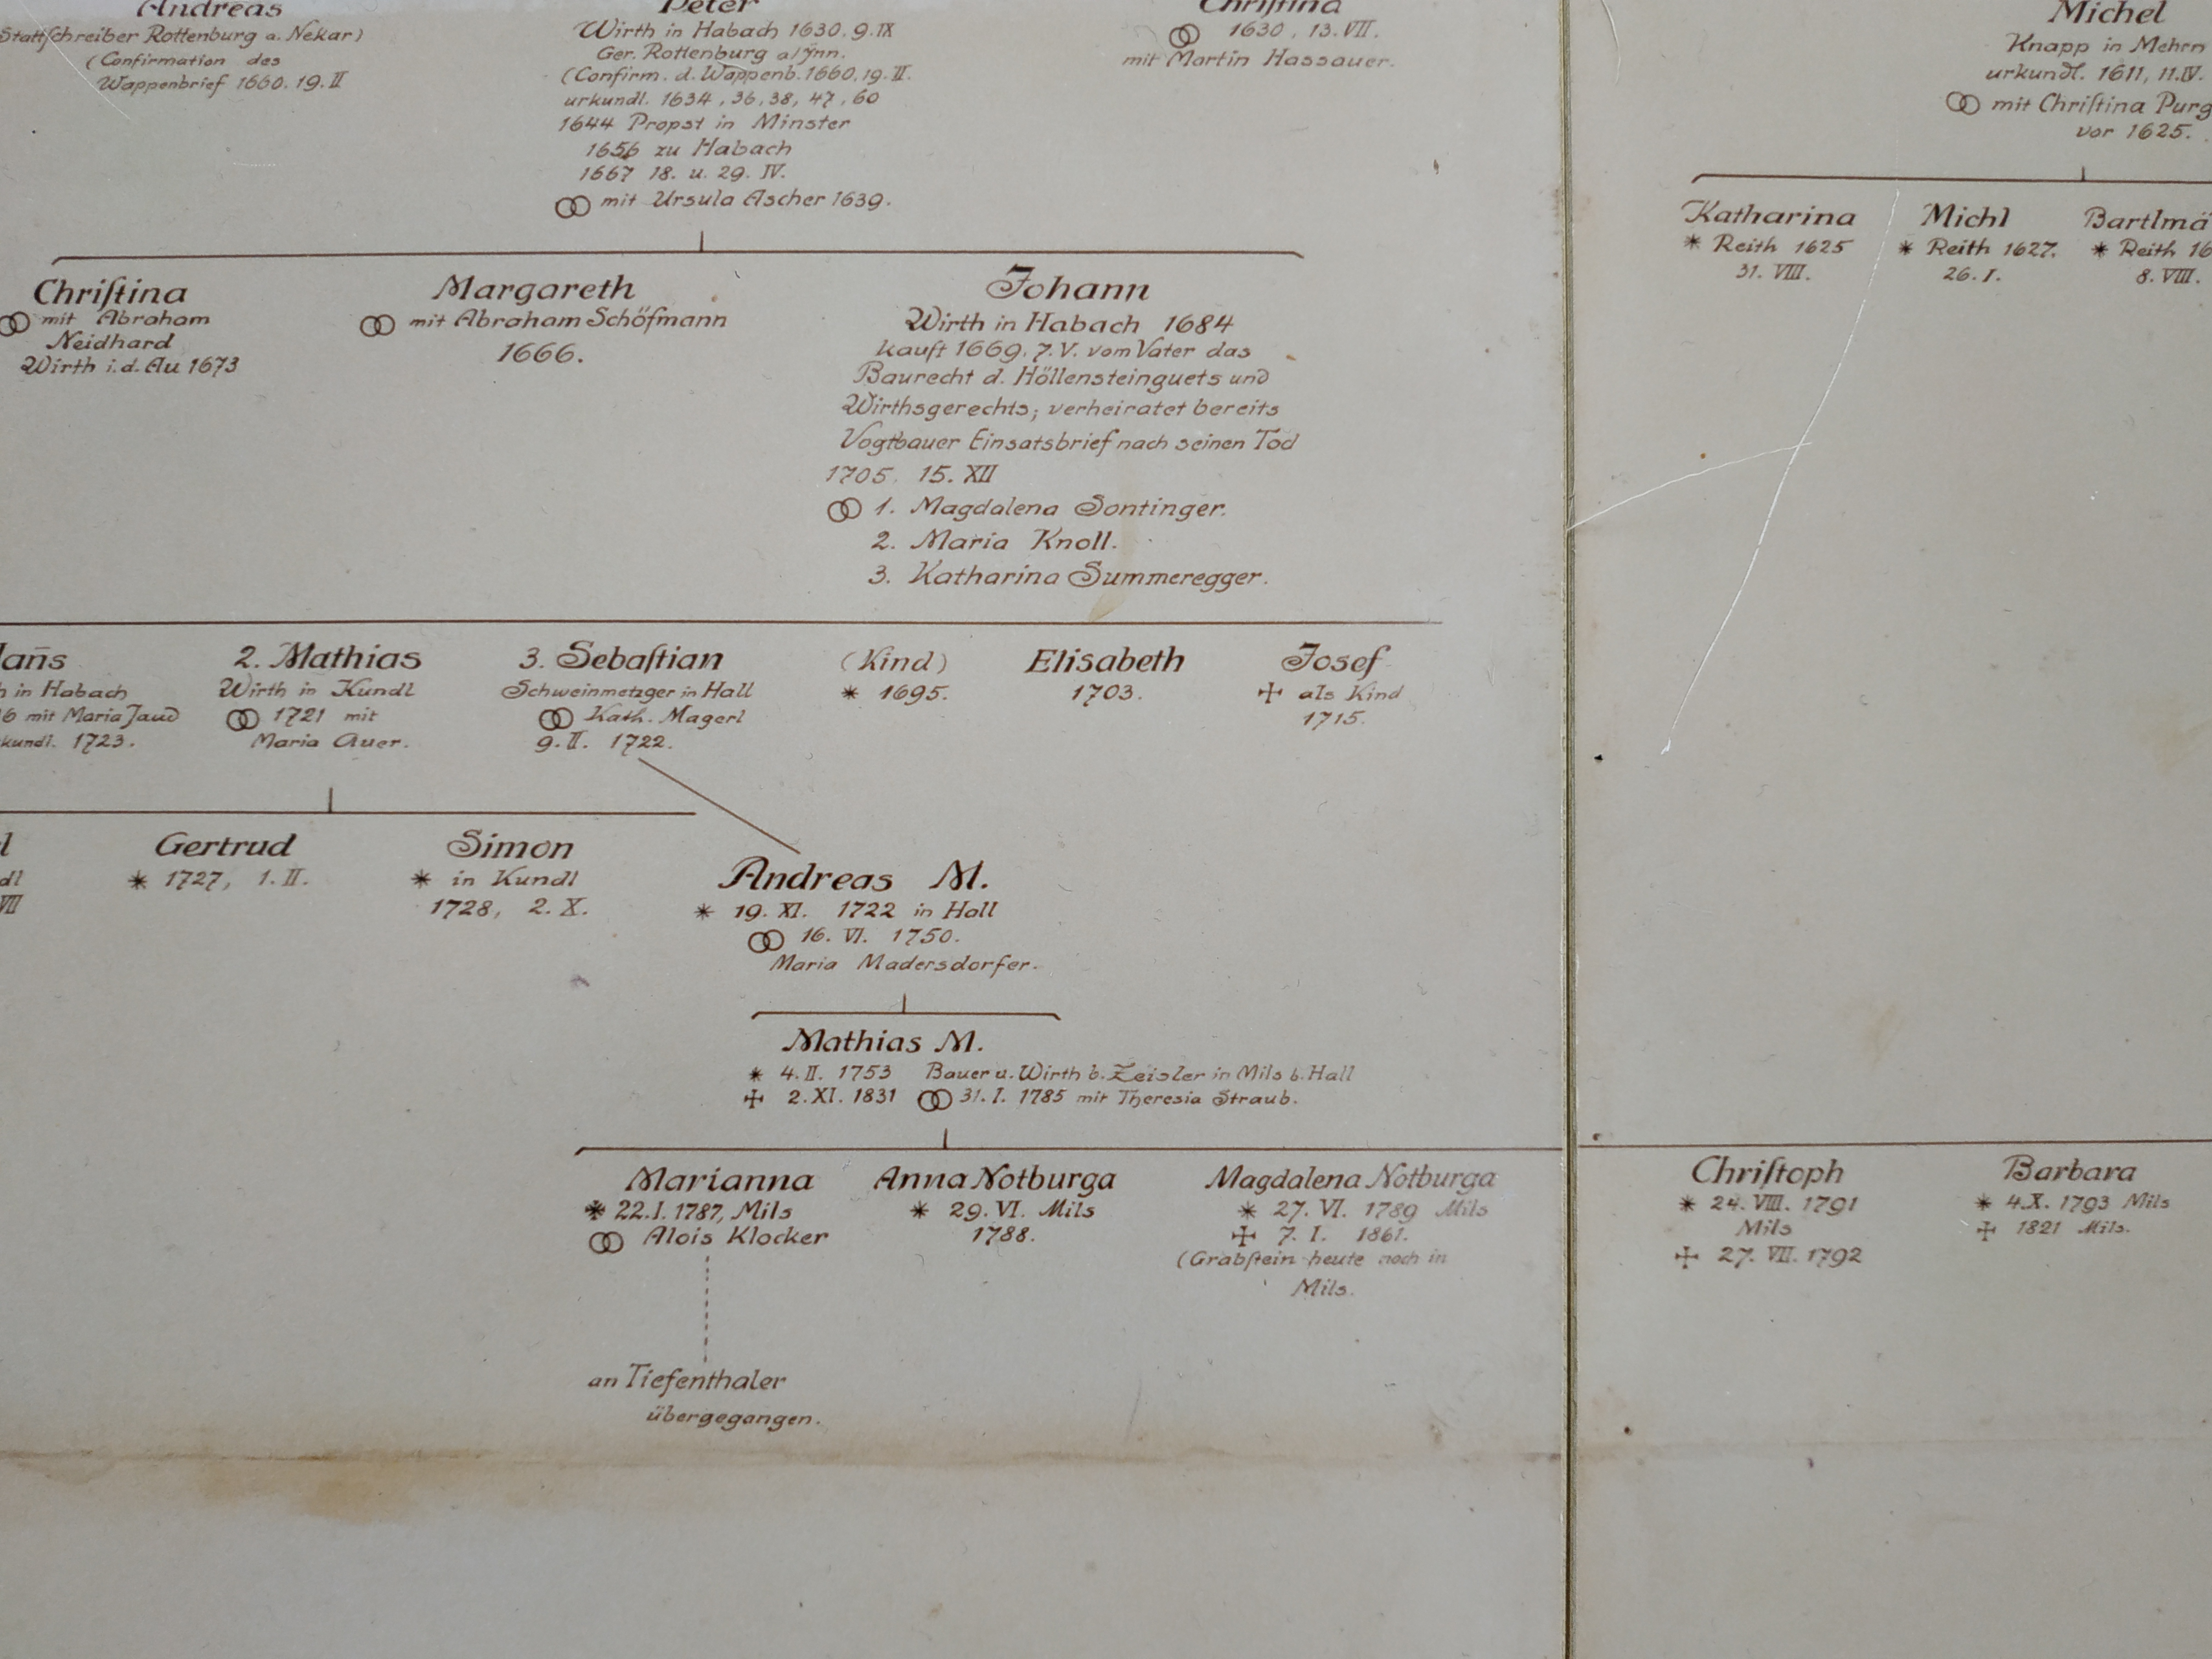 Andreas
Stattſchreiber Rottenburg a. Nekar)
(Confirmation des
Wappenbrief 1660. 19. II
Peter
Wirth in Habach 1630. 9. IX
Ger. Rottenburg a/Ÿnn.
(Confirm. d. Wappenb. 1660. 19. II.
urkundl. 1634, 36, 38, 47, 60
1644 Propst in Minster
1656 zu Habach
1667 18. u. 29. IV.
ⵔⵔ mit Ursula Ascher 1639.
Chriſtina
1630, 13. VII.
mit Martin Hassauer.
Michel
Knapp in Mehrn
urkundl. 1611, 11. IV.
mit Chriſtina Purg
vor 1625.
Katharina
* Reith 1625
31. VIII.
Michl
* Reith 1627.
26. I.
Bartlmä
* Reith 16
8. VIII.
Chriſtina
mit Abraham
Neidhard
Wirth i. d. Au 1673
Margareth
mit Abraham Schöfmann
1666.
Johann
Wirth in Habach 1684
kauft 1669. 7. V. vom Vater das
Baurecht d. Höllensteinguets und
Wirthsgerechts; verheiratet bereits
Vogtbauer Einsatsbrief nach seinen Tod
1705. 15. XII
1. Magdalena Sontinger.
2. Maria Knoll.
3. Katharina Summeregger.
Jan̄s
h in Habach
6 mit Maria Jaud
kundl. 1723.
2. Mathias
Wirth in Kundl
1721 mit
Maria Auer.
3. Sebaſtian
Schweinmetzger in Hall
Kath. Magerl
9. II. 1722.
(Kind)
* 1695.
Elisabeth
1703.
Josef
✠ als Kind
1715.
l
dl
VII
Gertrud
* 1727, 1. II.
Simon
* in Kundl
1728, 2. X.
Andreas M.
* 19. XI. 1722 in Hall
16. VI. 1750.
Maria Madersdorfer.
Mathias M.
* 4. II. 1753 Bauer u. Wirth b. Zeisler in Mils b. Hall
✠ 2. XI. 1831 31. I. 1785 mit Theresia Straub.
Marianna
* 22. I. 1787, Mils
Alois Klocker
an Tiefenthaler
übergegangen.
Anna Notburga
* 29. VI. Mils
1788.
Magdalena Notburga
* 27. VI. 1789 Mils
✠ 7. I. 1861.
(Grabſtein heute noch in
Mils.
Chriſtoph
* 24. VIII. 1791
Mils
✠ 27. VII. 1792
Barbara
* 4. X. 1793 Mils
✠ 1821 Mils.